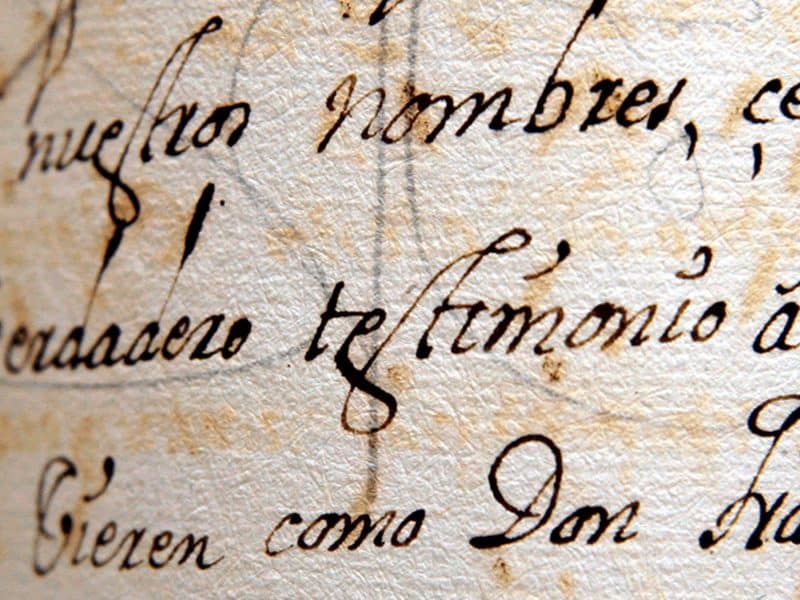 nuestros nombres, çe
verdadero testimonio a
Vieren como Don Fra